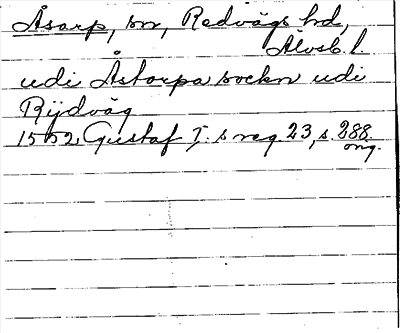 Åsarp, sn, Redvägs hd,
Älvsb. l.
udi Åstorpa sockn udi
Rijdvåg
1552, Gustaf I:s reg. 23, s. 288.
orig.